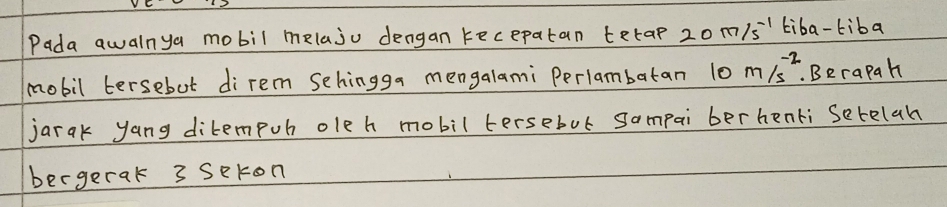 Pada awalnya mobil melaju dengan kecepatan tetap 20 m/s⁻¹ tiba-tiba
mobil tersebut di rem sehingga mengalami Perlambatan 10 m/s⁻². Berapah
jarak yang ditempuh oleh mobil tersebut sampai berhenti setelah
bergerak 3 sekon